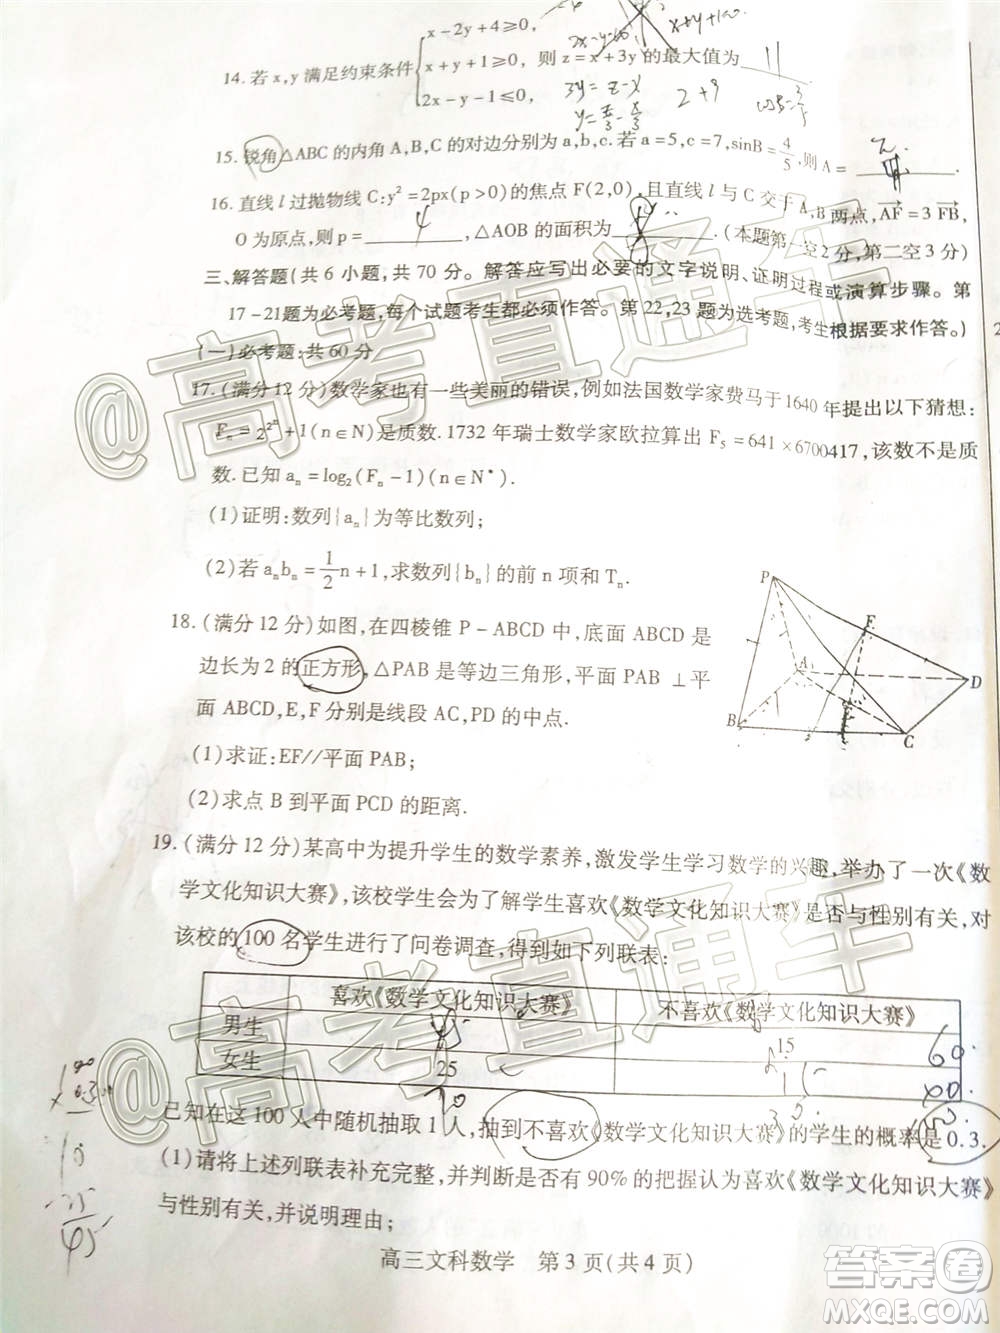 x-2y+4≥0,
14.若x,y满足约束条件{x+y+1≥0, 则z=x+3y的最大值为 11
2x-y-1≤0,
x+y+1=0.
2x-y=1
3y=z-x
2+9
15.锐角△ABC的内角A,B,C的对边分别为a,b,c.若a=5,c=7,sinB=4/5,则A=
16.直线l过抛物线C:y²=2px(p>0)的焦点F(2,0),且直线l与C交于A,B两点,AF=3FB,
O为原点,则p= 4 ,△AOB的面积为 .(本题第一空2分,第二空3分)
三、解答题(共6小题,共70分。解答应写出必要的文字说明、证明过程或演算步骤。第
17-21题为必考题,每个试题考生都必须作答。第22,23题为选考题,考生根据要求作答。)
(一)必考题:共60分
17.(满分12分)数学家也有一些美丽的错误,例如法国数学家费马于1640年提出以下猜想:
Fₙ=2^(2^n)+1(n∈N)是质数.1732年瑞士数学家欧拉算出F₅=641×6700417,该数不是质
数.已知aₙ=log₂(Fₙ-1)(n∈N*).
(1)证明:数列{aₙ}为等比数列;
(2)若aₙbₙ=1/2n+1,求数列{bₙ}的前n项和Tₙ.
18.(满分12分)如图,在四棱锥P-ABCD中,底面ABCD是
边长为2的正方形,△PAB是等边三角形,平面PAB⊥平
面ABCD,E,F分别是线段AC,PD的中点.
(1)求证:EF//平面PAB;
(2)求点B到平面PCD的距离.
P
F
A
D
B
C
19.(满分12分)某高中为提升学生的数学素养,激发学生学习数学的兴趣,举办了一次《数
学文化知识大赛》,该校学生会为了解学生喜欢《数学文化知识大赛》是否与性别有关,对
该校的100名学生进行了问卷调查,得到如下列联表:
喜欢《数学文化知识大赛》 不喜欢《数学文化知识大赛》
男生 15 60
女生 25 15
70
已知在这100人中随机抽取1人,抽到不喜欢《数学文化知识大赛》的学生的概率是0.3.
(1)请将上述列联表补充完整,并判断是否有90%的把握认为喜欢《数学文化知识大赛》
与性别有关,并说明理由;
高三文科数学 第3页(共4页)
@高考直通车
@高考直通车
答案圈
MXQE.COM